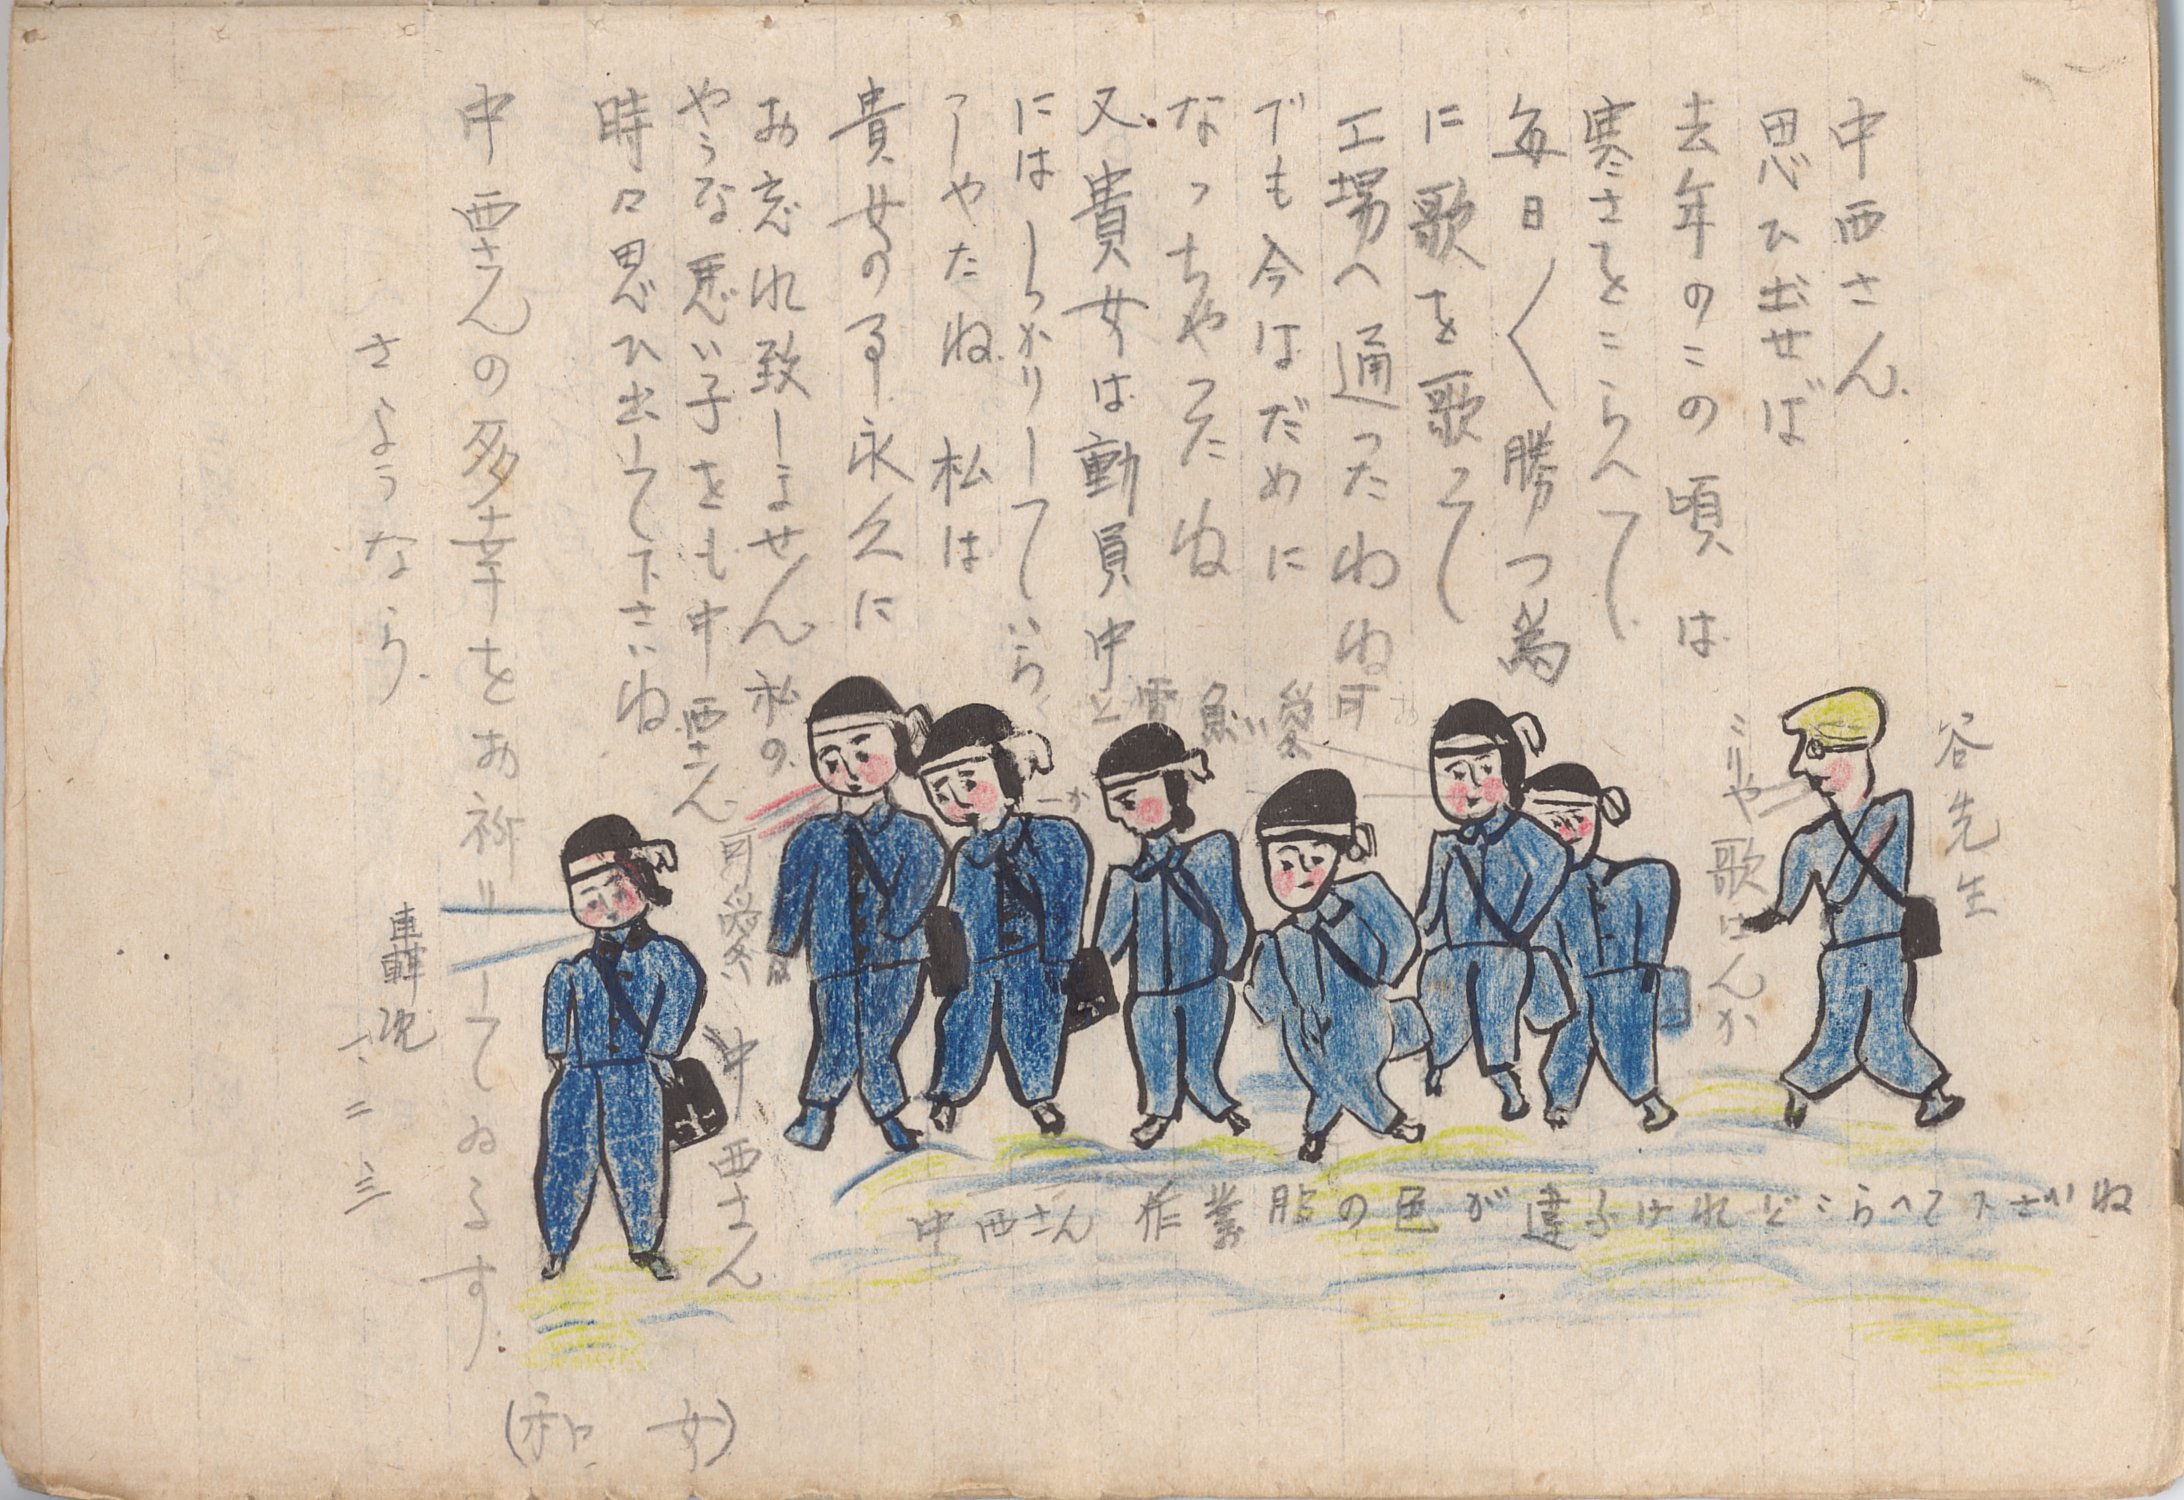 中西さん.
思ひ出せば
去年のこの頃は
寒さをこらへて
毎日〱勝つ為
に歌を歌って
工場へ通ったわね
でも今はだめに
なっちやったね
又貴女は動員中
にはしっかりしていら
しやたね 私は
貴女の事永久に
お忘れ致しません 私の
やうな悪い子をも中西さん
時々思ひ出して下さいね
中西さんの多幸をお祈りしてゐるす.
さようなら.
二三
谷先生
こりや歌はんか
可愛い
中西さん
中西さん 作業服の色が違ふけれどこらへて下さいね
(和女)